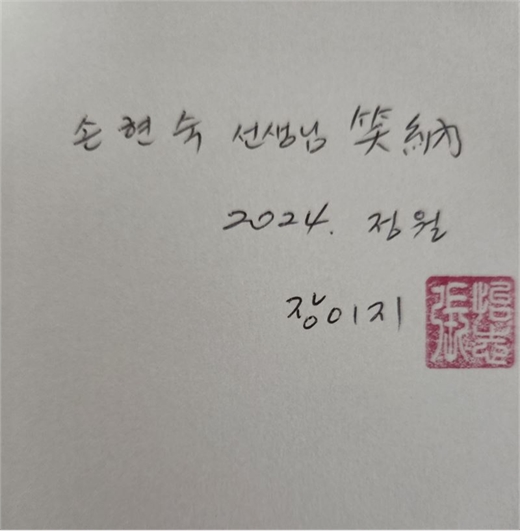 손현숙 선생님 笑納
2024. 정월
장이지